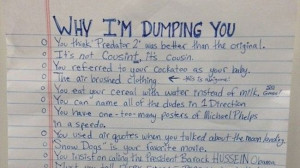 WHY I'M DUMPING YOU
You think 'Predator 2' was better than the original.
It's not Cousin It, it's cousin.
You referred to your Cockatoo as your baby.
The air brushed clothing.
You eat your cereal with water instead of milk.
You can name all of the dudes in 1 Direction
You have one-too-many posters of Michael Phelps
in a speedo.
You used air quotes when you talked about the moon landing
"Snow Dogs" is your favorite movie.
You insist on calling the President Barack HUSSEIN Obama